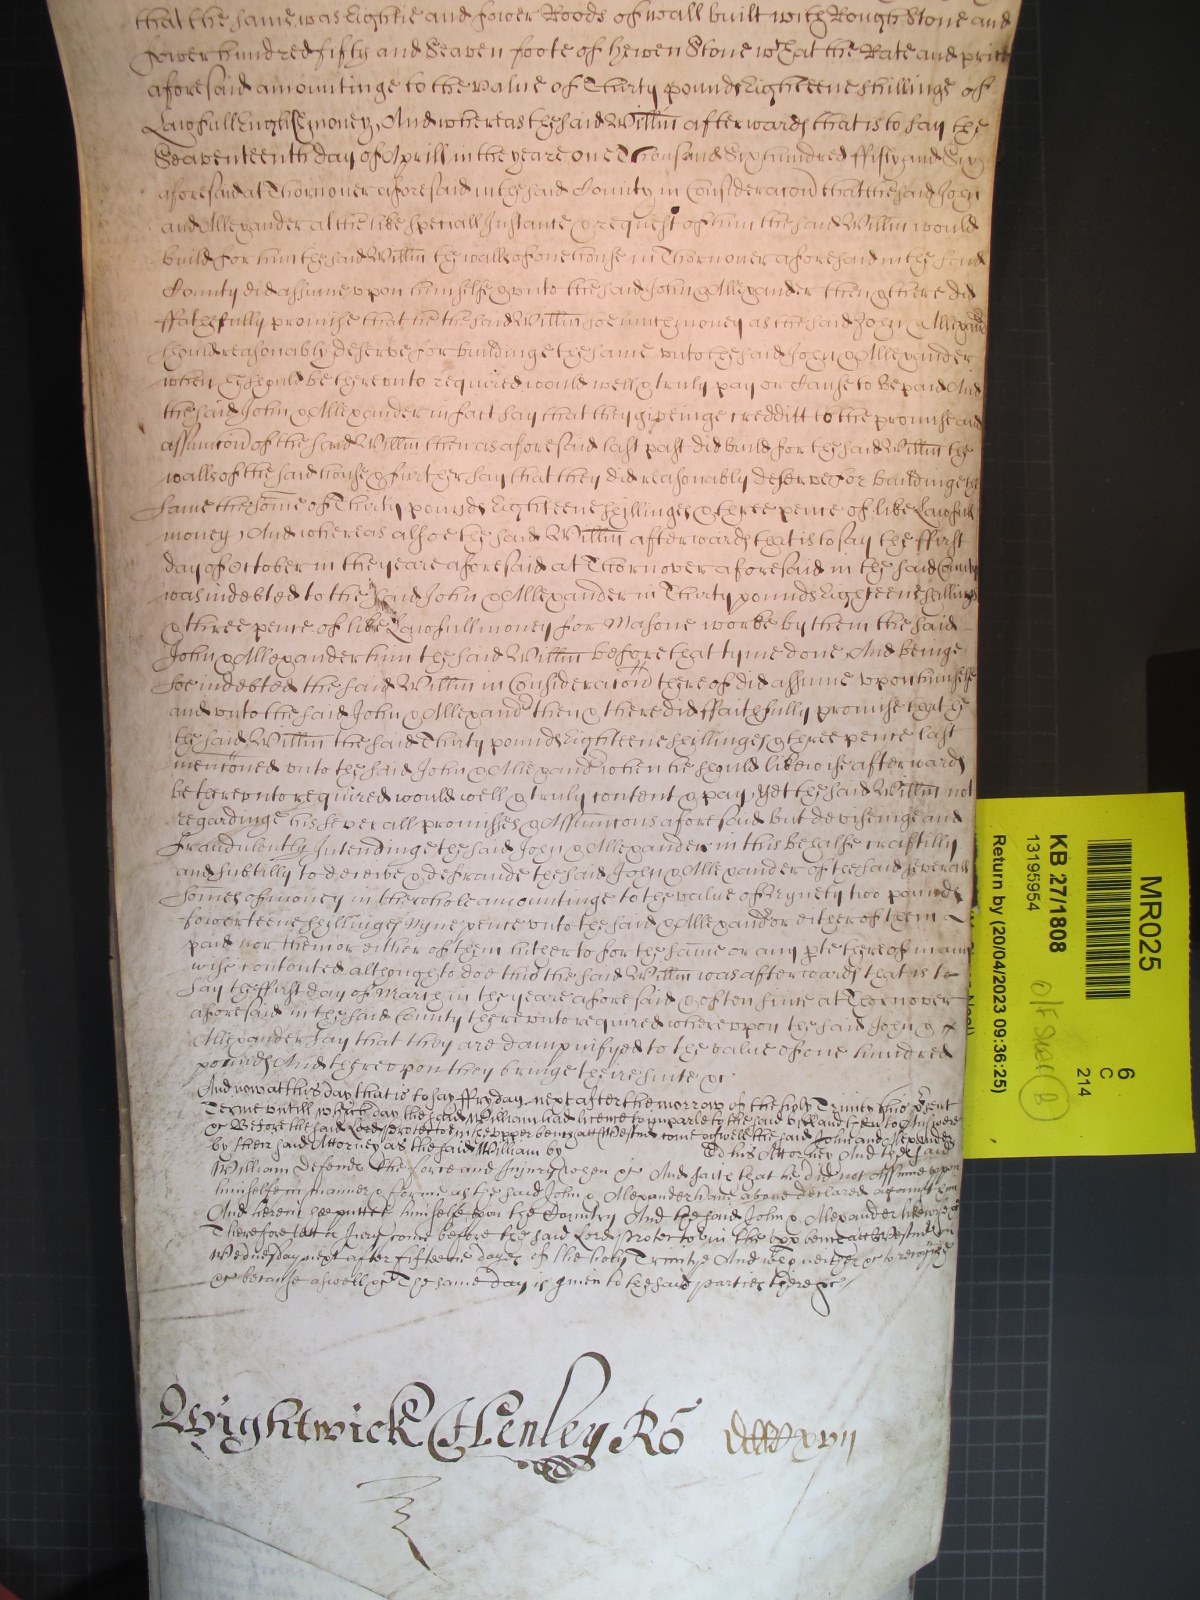 that the same was Eightie and fower Roods of wall built with Rough Stone and
fower hundred fifty and Seaven foote of hewen Stone wch at the Rate and price
aforesaid amountinge to the value of Thirty pounds Eighteene shillinge of
Lawfull English money, And whereas the said Willm afterwards that is to say the
Seaventeenth day of Aprill in the yeare one Thousand Six hundred ffifty and Six
aforesaid at Thornover aforesaid in the said County in Consideracon that the said John
and Allexander at the like speciall Instance & request of him the said Willm would
build for him the said Willm the walls of one house in Thornover aforesaid in the said
County did assume vpon himselfe & vnto the said John & Allexander then & there did
ffathefully promise that he the said Willm soe much money as the said John & Allexander
should reasonably deserve for buildinge the same vnto the said John & Allexander
when he should be therevnto required would well & truly pay or Cause to be paid And
the said John & Allexander in fact say that they giveinge creditt to the promise and
assumcon of the said Willm then as aforesaid last past did build for the said Willm the
walls of the said house & further say that they did reasonably deserve for buildinge the
same the some of Thirty pounds Eighteene shillinges & three pence of like Lawfull
money, And whereas alsoe the said Willm afterwards that is to say the ffirst
day of October in the yeare aforesaid at Thornover aforesaid in the said County
was indebted to the said John & Allexander in Thirty pounds Eighteene shillings
& three pence of like Lawfull money for Masons worke by them the said
John & Allexander him the said Willm before that tyme done And beinge
soe indebted the said Willm in Consideracon thereof did assume vpon himselfe
and vnto the said John & Allexandr then & there did ffaithfully promise that he
the said Willm the said Thirty pounds Eighteene shillinges & three pence last
mencioned vnto the said John & Allexandr when he should likewise afterwards
be therevnto required would well & truly content & pay, yet the said Willm not
regardinge his severall promises & Assumcons aforesaid but deviseinge and
fraudulently Intendinge the said John & Allexander in this behalfe craftilly
and subtilly to deceive & defraude the said John & Allexander of the said severall
somes of money in the whole amountinge to the value of Nynety two pounds
fowerteene shillinges Nyne pence vnto the said & Allexandr or either of them
paid nor them or either of them hitherto for the same or any pte thereof in any
wise contented although to doe this the said Willm was afterwards that is to
say the ffirst day of March in the yeare aforesaid & often since at Thornover
aforesaid in the said County therevnto required wherevpon the said John &
Allexander say that they are dampnifyed to the value of one hundred
pounds And therevpon they bringe theire suite &c
And now at this day that is to say ffryday next after the morrow of the holy Trinity this
Terme vntill which day the said William had licence to imparle to the said bill and then to Answere
&c Before the said Lord Protector in the vpper bench att Westmr come aswell the said John and Alexander
by their said Attorney as the said William by his Attorney And the said
William defends the force and Injury when &c And saith that he did not Assume vpon
himselfe in manner & forme as the said John & Alexander have above declared against him
And herein hee putteth himselfe vpon the Country And the said John & Alexander likewise &c
Therefore lett a Jury come before the said Lord Protector in the vpp bench att Westmr on
Wednesday next after fifteene dayes of the holy Trinitye And who neither &c to recognize
&c because aswell &c The same day is given to the said parties there &c
Wightwick Henley Ro
MR025
KB 27/1808
13195954
Return by (20/04/2023 09:36:25)
6
C
214
B